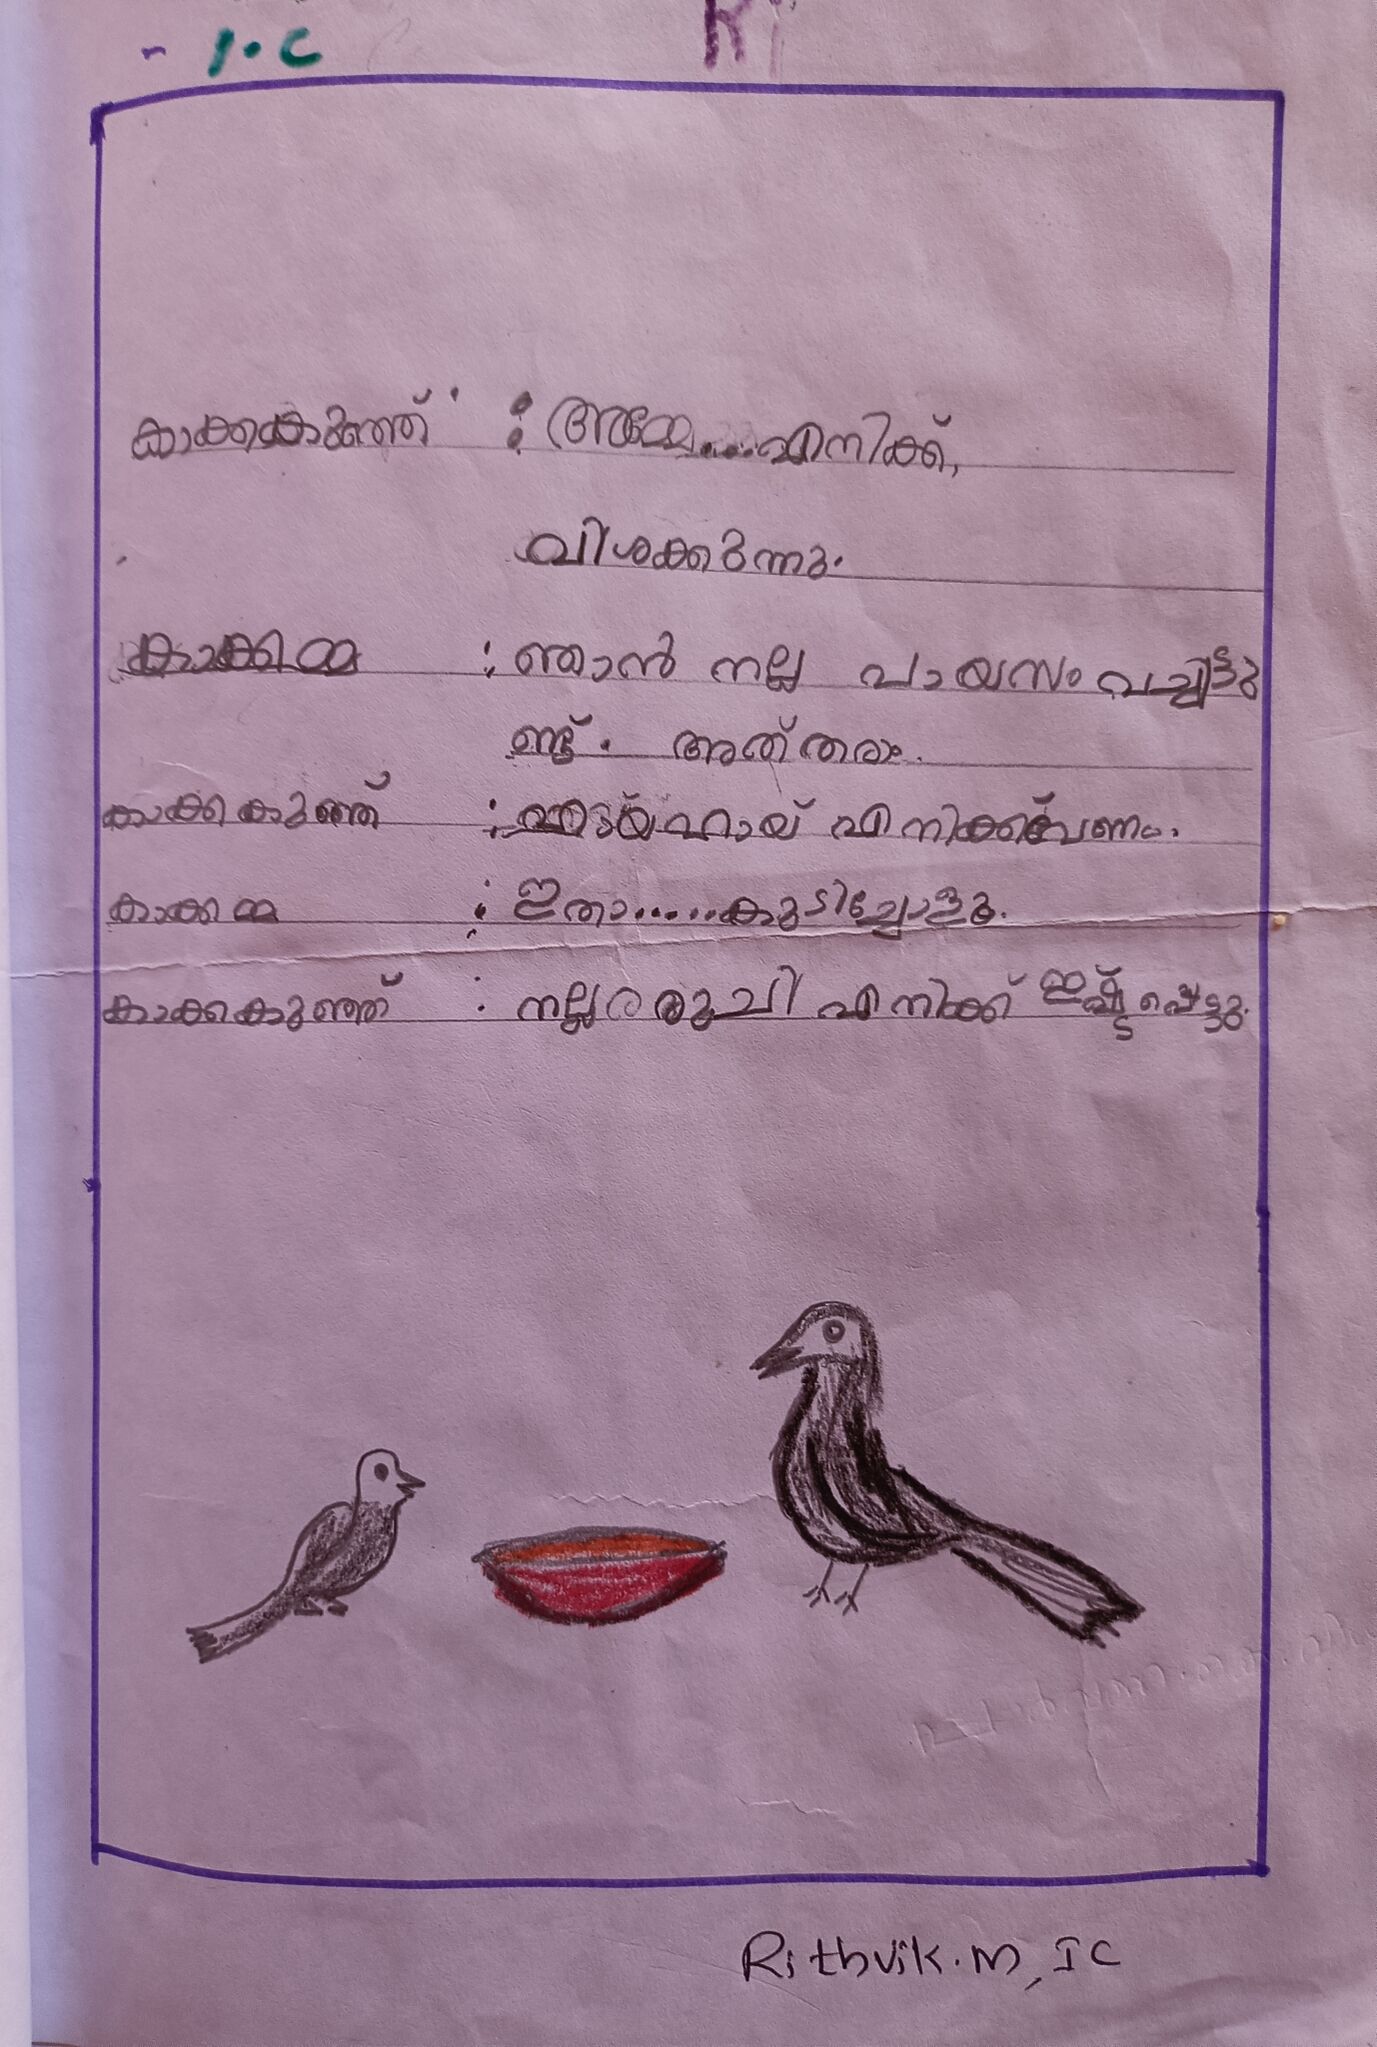 - 1.C
Ri
കാക്കകുഞ്ഞ് : അമ്മേ.....എനിക്ക്,
വിശക്കുന്നു.
കാക്കമ്മ : ഞാൻ നല്ല പായസം വച്ചിട്ടു
ണ്ട്. അത് തരാം.
കാക്ക കുഞ്ഞ് : ഹായ് എനിക്ക് വേണം.
കാക്കമ്മ : ഇതാ......കുടിച്ചോളൂ.
കാക്കകുഞ്ഞ് : നല്ല രുചി എനിക്ക് ഇഷ്ട്ടപ്പെട്ടു.
Rithvik.M, IC